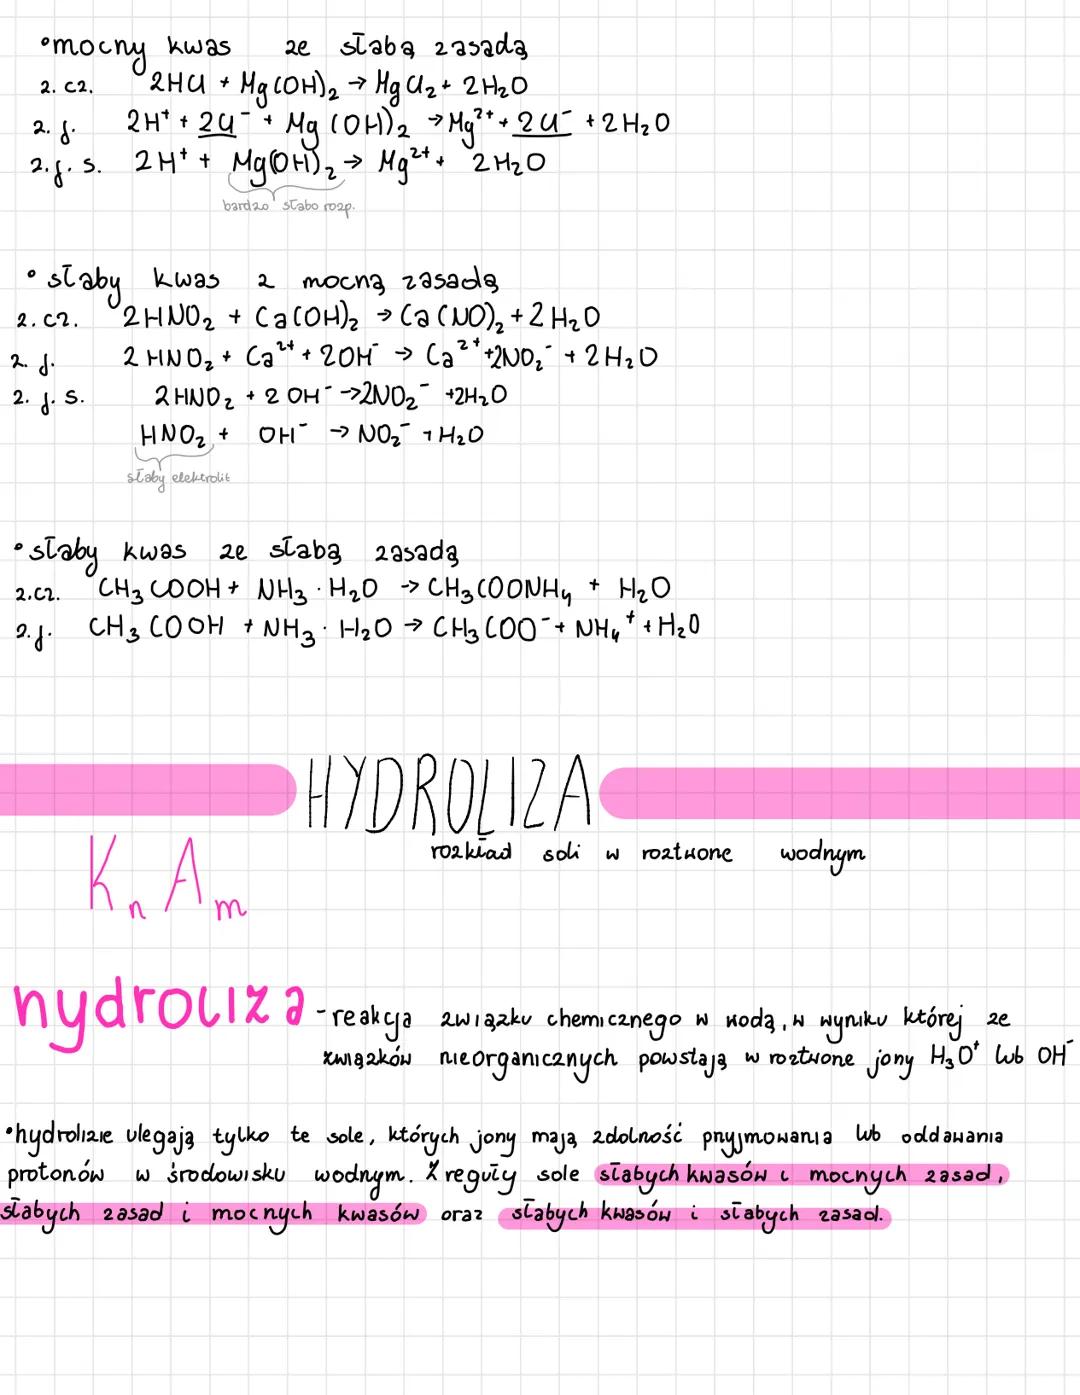 •mocny kwas ze słabą zasadą
z. cz. 2HCl + Mg(OH)₂ → MgCl₂ + 2H₂O
z. j. 2H⁺ + 2Cl⁻ + Mg(OH)₂ → Mg²⁺ + 2Cl⁻ + 2H₂O
z. j. s. 2H⁺ + Mg(OH)₂ → Mg²⁺ + 2H₂O
bardzo słabo rozp.
• słaby kwas z mocną zasadą
z. cz. 2HNO₂ + Ca(OH)₂ → Ca(NO)₂ + 2H₂O
z. j. 2HNO₂ + Ca²⁺ + 2OH⁻ → Ca²⁺ + 2NO₂⁻ + 2H₂O
z. j. s. 2HNO₂ + 2OH⁻ → 2NO₂⁻ + 2H₂O
HNO₂ + OH⁻ → NO₂⁻ + H₂O
słaby elektrolit
• słaby kwas ze słabą zasadą
z. cz. CH₃COOH + NH₃ · H₂O → CH₃COONH₄ + H₂O
z. j. CH₃COOH + NH₃ · H₂O → CH₃COO⁻ + NH₄⁺ + H₂O
HYDROLIZA
rozkład soli w roztworze wodnym
KₙAₘ
hydroliza - reakcja związku chemicznego w wodą, w wyniku której ze
związków nieorganicznych powstają w roztworze jony H₃O⁺ lub OH⁻
•hydrolizie ulegają tylko te sole, których jony mają zdolność przyjmowania lub oddawania
protonów w środowisku wodnym. Z reguły sole słabych kwasów i mocnych zasad,
słabych zasad i mocnych kwasów oraz słabych kwasów i słabych zasad.